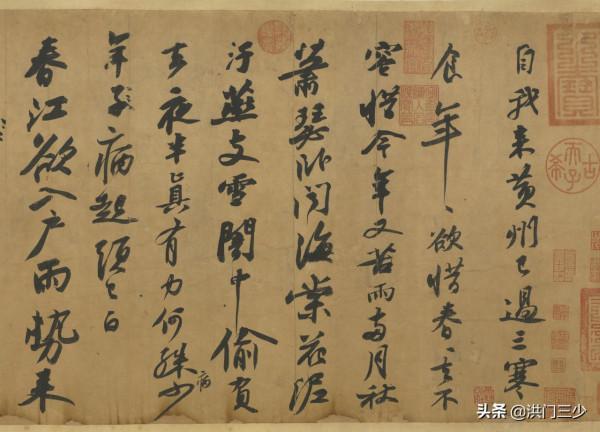 自我來黃州已過三寒
食年〻欲惜春〻去不
容惜今年又苦雨兩月秋
蕭瑟卧聞海棠花泥
汙燕支雪闇中偷負
去夜半真有力何殊少
病
年子病起須已白
春江欲入户雨勢来
古希天子
头条 @洪门三少